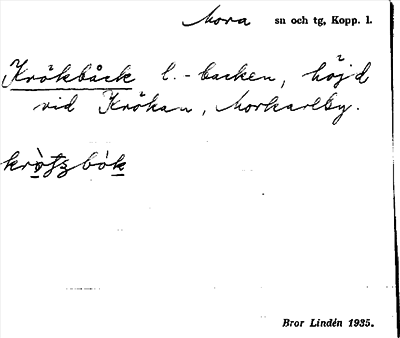 Mora sn och tg, Kopp. l.
Krökbåck l. -backen, höjd
vid Krökan, Morkarlby.
Bror Lindén 1935.